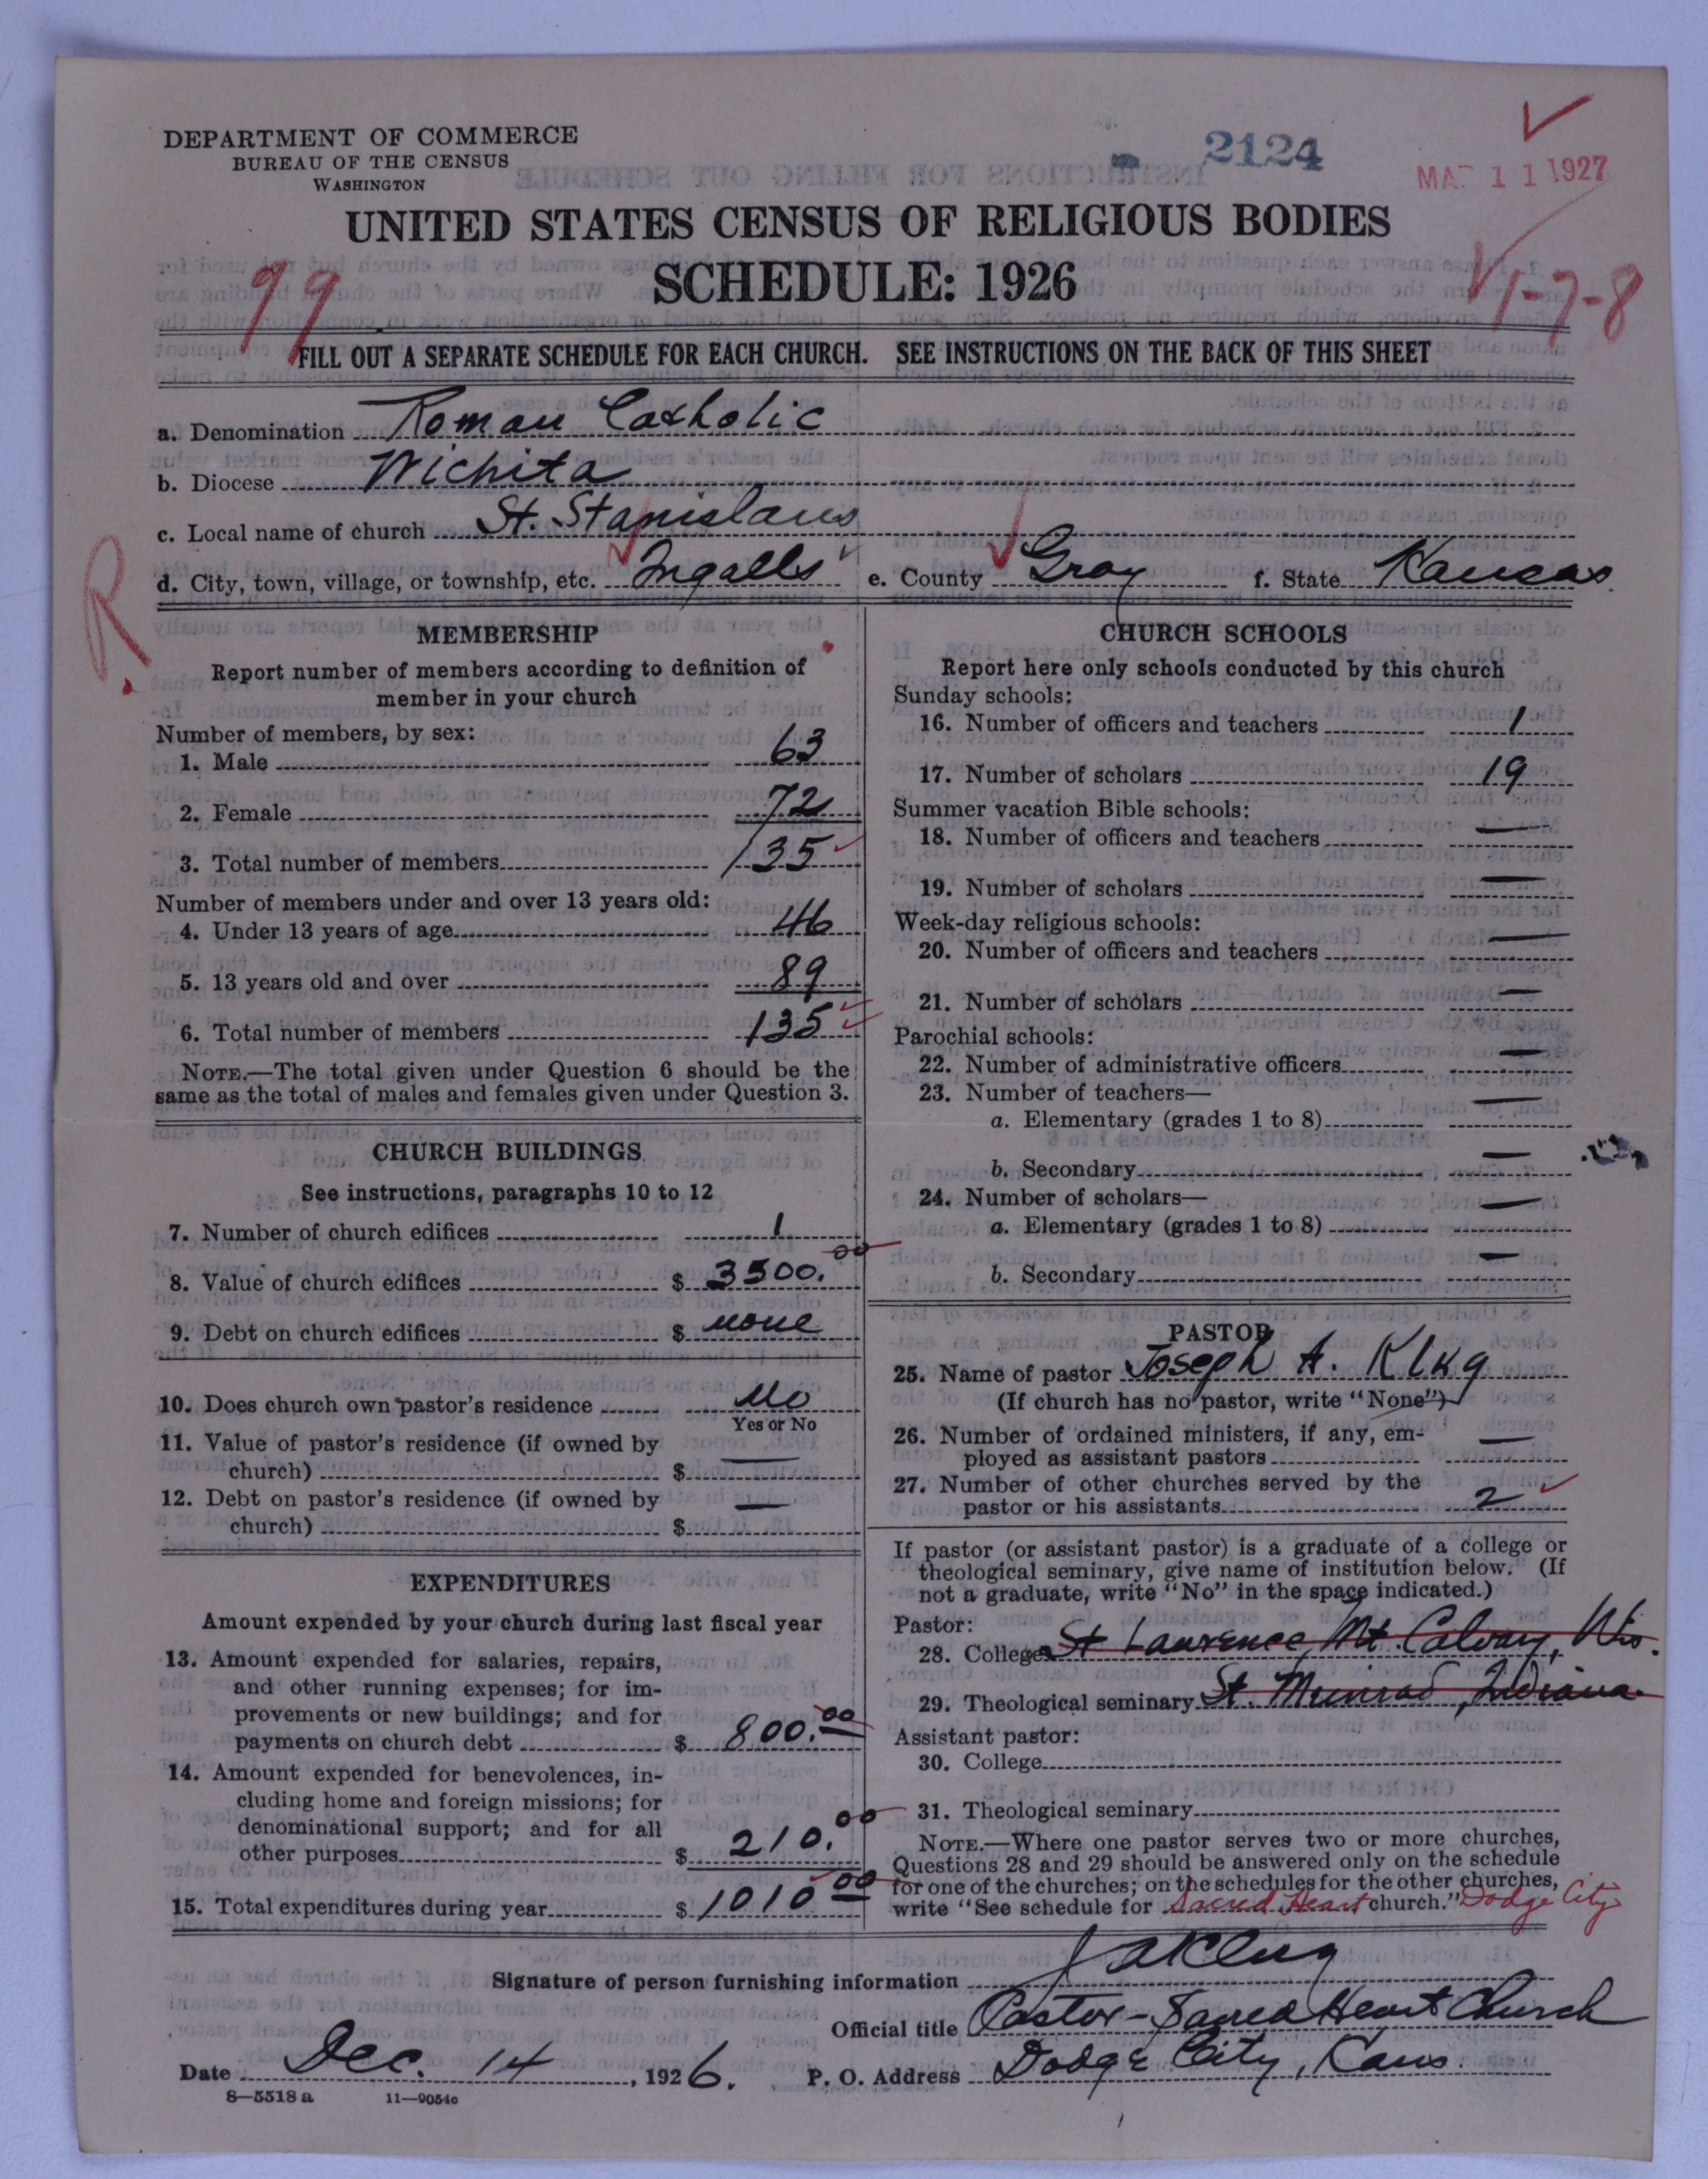 DEPARTMENT OF COMMERCE
BUREAU OF THE CENSUS
WASHINGTON
2124
MAR 11 1927
UNITED STATES CENSUS OF RELIGIOUS BODIES
SCHEDULE: 1926
99
1-7-8
FILL OUT A SEPARATE SCHEDULE FOR EACH CHURCH. SEE INSTRUCTIONS ON THE BACK OF THIS SHEET
a. Denomination Roman Catholic
b. Diocese Wichita
c. Local name of church St. Stanislaus
d. City, town, village, or township, etc. Ingalls e. County Gray f. State Kansas.
R.
MEMBERSHIP
Report number of members according to definition of
member in your church
Number of members, by sex:
1. Male 63
2. Female 72
3. Total number of members 135
Number of members under and over 13 years old:
4. Under 13 years of age 46
5. 13 years old and over 89
6. Total number of members 135
NOTE.—The total given under Question 6 should be the
same as the total of males and females given under Question 3.
CHURCH BUILDINGS
See instructions, paragraphs 10 to 12
7. Number of church edifices 1
8. Value of church edifices $ 3500.00
9. Debt on church edifices $ none
10. Does church own pastor's residence No
Yes or No
11. Value of pastor's residence (if owned by
church) $ —
12. Debt on pastor's residence (if owned by
church) $ —
EXPENDITURES
Amount expended by your church during last fiscal year
13. Amount expended for salaries, repairs,
and other running expenses; for im-
provements or new buildings; and for
payments on church debt $ 800.00
14. Amount expended for benevolences, in-
cluding home and foreign missions; for
denominational support; and for all
other purposes $ 210.00
15. Total expenditures during year $ 1010 00
CHURCH SCHOOLS
Report here only schools conducted by this church
Sunday schools:
16. Number of officers and teachers 1
17. Number of scholars 19
Summer vacation Bible schools:
18. Number of officers and teachers —
19. Number of scholars —
Week-day religious schools:
20. Number of officers and teachers —
21. Number of scholars —
Parochial schools:
22. Number of administrative officers —
23. Number of teachers—
a. Elementary (grades 1 to 8) —
b. Secondary —
24. Number of scholars—
a. Elementary (grades 1 to 8) —
b. Secondary —
PASTOR
25. Name of pastor Joseph A. Klug
(If church has no pastor, write "None")
26. Number of ordained ministers, if any, em-
ployed as assistant pastors —
27. Number of other churches served by the
pastor or his assistants 2
If pastor (or assistant pastor) is a graduate of a college or
theological seminary, give name of institution below. (If
not a graduate, write "No" in the space indicated.)
Pastor:
28. College St Lawrence, Mt. Calvary, Wis.
29. Theological seminary St. Meinrad, Indiana.
Assistant pastor:
30. College
31. Theological seminary
NOTE.—Where one pastor serves two or more churches,
Questions 28 and 29 should be answered only on the schedule
for one of the churches; on the schedules for the other churches,
write "See schedule for Sacred Heart church." Dodge City
Signature of person furnishing information J A Klug
Official title Pastor - Sacred Heart Church
Date Dec. 14, 1926. P. O. Address Dodge City, Kans.
8—5518 a 11—9054c